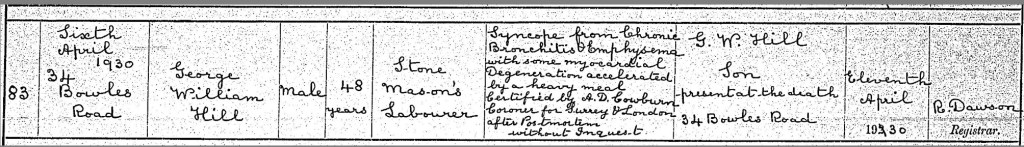 83
Sixth
April
1930
34
Bowles
Road
George
William
Hill
Male
48
years
Stone
Mason's
Labourer
Syncope from Chronic
Bronchitis & Emphysema
with some myocardial
Degeneration accelerated
by a heavy meal
Certified by A.D. Cowburn
Coroner for Surrey & London
after Postmortem
without Inquest
G. W. Hill
Son
present at the death
34 Bowles Road
Eleventh
April
1930
R. Dawson
Registrar.